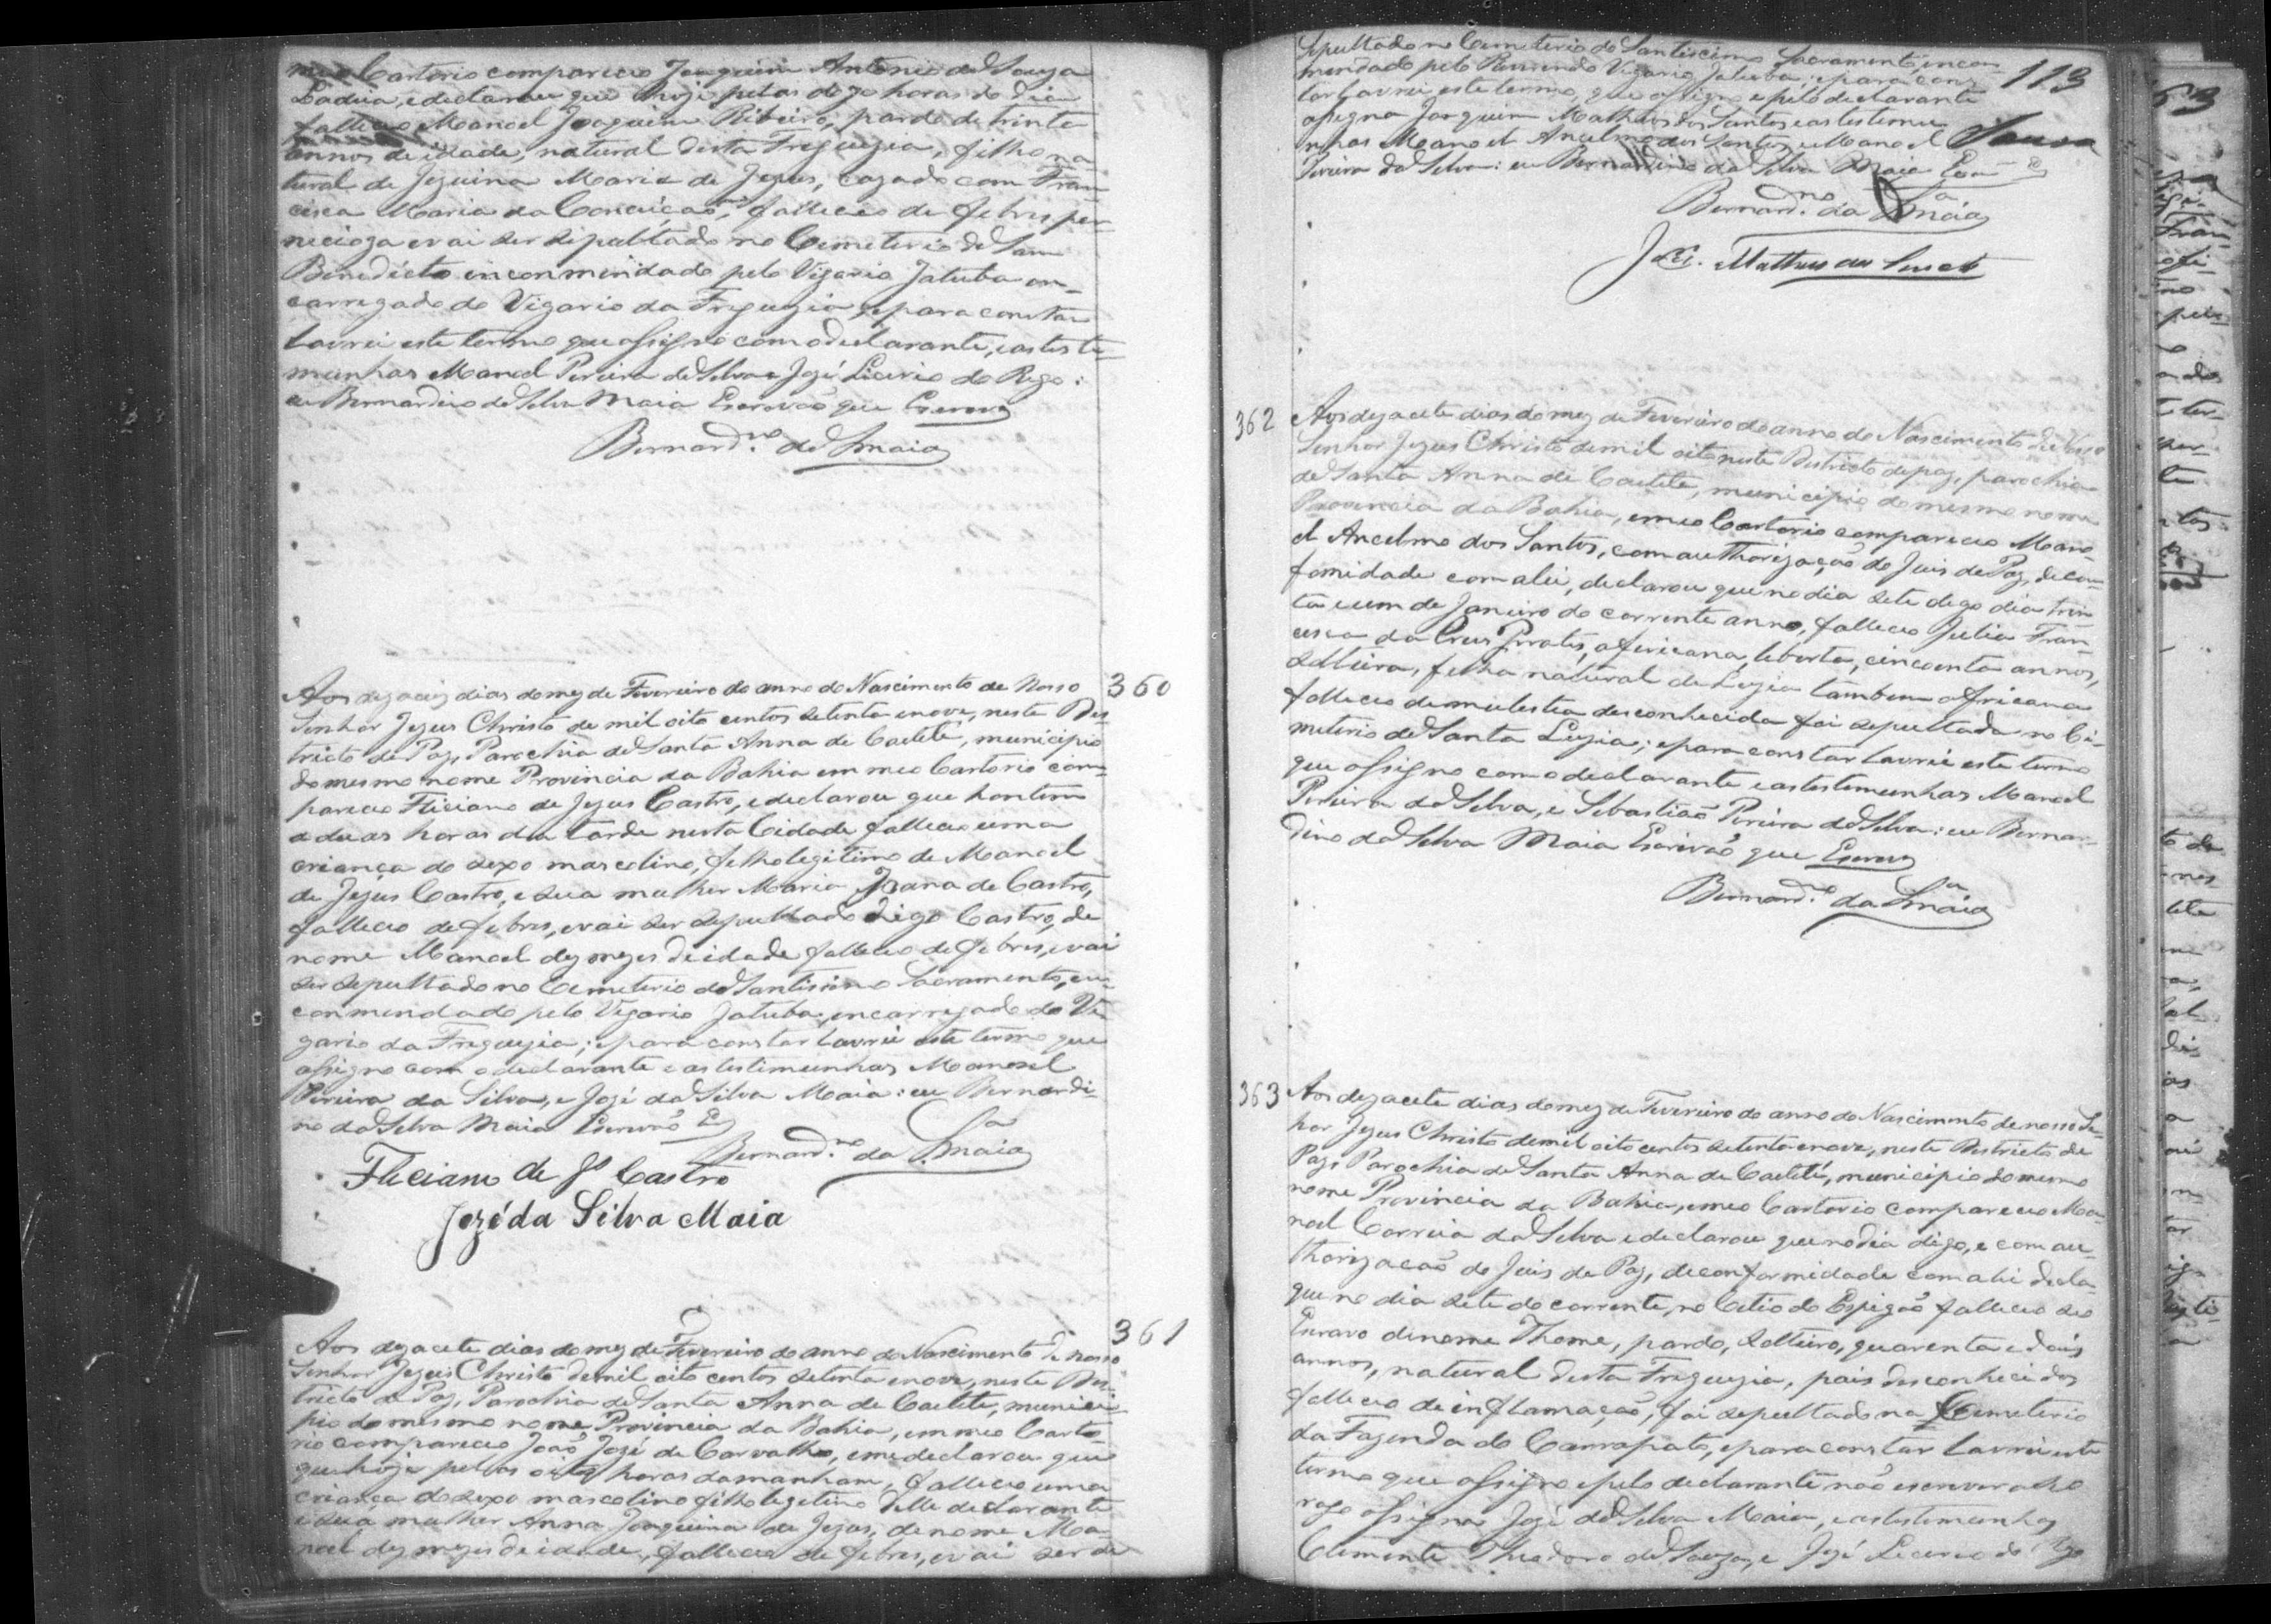 meu Cartorio compareceo Joaquim Antonio de Souza
Ladeia, e declarou que hoje pelas doze horas do dia
falleceo Manoel Joaquim Ribeiro, pardo de trinta
annos de idade, natural desta Freguezia, filho na-
tural de Jezuina Maria de Jezus, cazado com Fran-
cisca Maria da Conceição, falleceo de febres per-
necioza e vai ser sepultado no Cemeterio de Sam
Benedicto enconmendado pelo Vigario Jatuba en-
carregado do Vigario da Freguezia, e para constar
lavrei este termo que assigno com o declarante, e as teste-
munhas Manoel Pereira da Silva e Jozé Licerio do Rego:
eu Bernardino da Silva Maia Escrivão que Escrevy
Bernard.no da S.a Maia
360
Aos dezaceis dias do mez de Fevereiro do anno do Nascimento de Nosso
Senhor Jezus Christo de mil oito centos setenta e nove, neste Des-
tricto de Paz, Parochia de Santa Anna de Caeteté, municipio
do mesmo nome Provincia da Bahia em meo Cartorio com-
pareceo Feliciano de Jezus Castro, e declarou que hontem
a duas horas da tarde nesta Cidade falleceo uma
criança do sexo mascolino, filho legitimo de Manoel
de Jezus Castro, e sua mulher Maria Joana de Castro,
falleceo de febres, e vai ser sepultado digo Castro, de
nome Manoel dez mezes de idade falleceo de febres, e vai
ser sepultado no Cemeterio do Santissimo Sacramento, en-
conmendado pelo Vigario Jatuba, encarregado do Vi-
gario da Freguezia; e para constar lavrei este termo que
assigno com o declarante e as testimunhas Manoel
Pereira da Silva, e Jozé da Silva Maia: eu Bernardi-
no da Silva Maia Escrivão E
Bernard.no da S.a Maia
Feliciano de Js Castro
Jozé da Silva Maia
361
Aos dezacete dias do mez de Fevereiro do anno do Nascimento de nosso
Senhor Jezus Christo de mil oito centos setenta e nove, neste Des-
tricto de Paz, Parochia de Santa Anna de Caeteté, munici-
pio do mesmo nome Provincia da Bahia, em meo Carto-
rio compareceo João Jozé de Carvalho, e me declarou que
que hoje pelas oito horas da manham, falleceo uma
criança do sexo mascolino filho legetimo delle declarante
e sua mulher Anna Joaquina de Jezus, de nome Ma-
noel dez mezes de idade, falleceo de febres, e vai ser de
113
Sepultado no Cemeterio do Santiscimo Sacramento, encon-
mendado pelo Reverendo Vigario Jatuba; e para cons-
tar lavrei este termo, que assigno e pelo declarante
assigna Joaquim Matheus dos Santos e as testemu-
nhas Manoel Ancelmo dos Santos e Manoel
Pereira da Silva: eu Bernardino da Silva Maia
Bernard.no da S.a Maia
362
Aos dezacete dias do mez de Fevereiro do anno do Nascimento de Nosso
Senhor Jezus Christo de mil oito neste Districto de paz, parochia
de Santa Anna de Caeteté, municipio do mesmo nome
Provincia da Bahia, em meo Cartorio compareceo Mano-
el Ancelmo dos Santos, com authorização do Juis de Paz, de con-
fomidade com a lei, declarou que no dia sete digo dia trin-
ta e um de Janeiro do corrente anno, falleceo Julia Fran-
cisca da Crus Prates, africana, liberta, cincoenta annos,
solteira, filha natural de Luzia tambem Africana
falleceo de mulestia desconhecida foi sepultada no Ce-
meterio de Santa Luzia; e para constar lavrei este termo
que assigno com o declarante e as testemunhas Manoel
Pereira da Silva, e Sebastião Pereira da Silva: eu Bernar-
dino da Silva Maia Escrivão que Escrevy
Bernard.no da S.a Maia
363
Aos dezacete dias do mez de Fevereiro do anno do Nascimento de nosso Se-
hor Jezus Christo de mil oito centos setenta e nove, neste Destricto de
Paz, Parochia de Santa Anna de Caeteté, municipio do mesmo
nome Provincia da Bahia, em meo Cartorio compareceo Ma-
noel Correia da Silva e declarou que no dia digo, e com au-
thorização do Juis de Paz, de conformidade com a lei decla-
que no dia sete do corrente, no Citio do Espigão falleceo seo
Escravo de nome Thome, pardo, solteiro, quarenta e dois
annos, natural desta Freguezia, pais desconhecidos
falleceo de inflamação, foi sepultado na Cemeterio
da Fazenda do Carrapato, e para constar lavrei este
termo que assigno e pelo declarante não escrever a seo
rogo assigna Jozé da Silva Maia, e as testemunhas
Clemente Theodoro de Souza, e Jozé Licerio do Rego